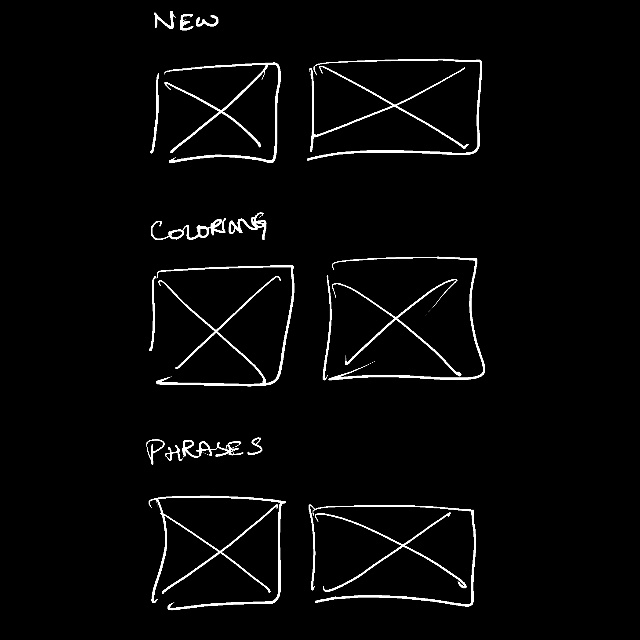 NEW
COLORING
PHRASES